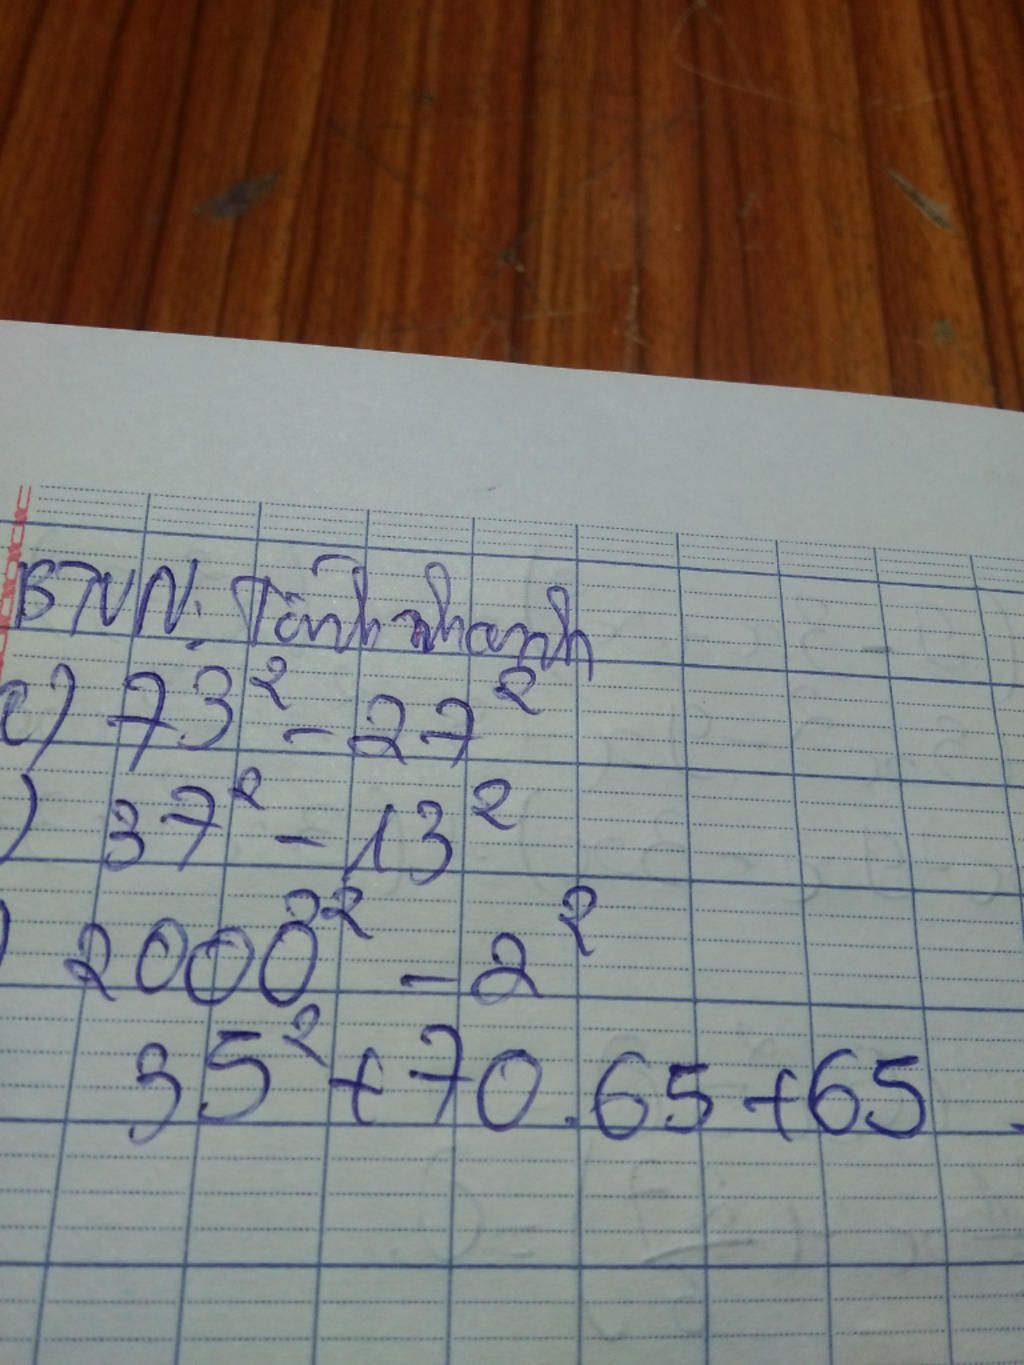 BTVN: Tính nhanh
c) 73² - 27²
) 37² - 13²
) 2000² - 2²
35² + 70.65 + 65